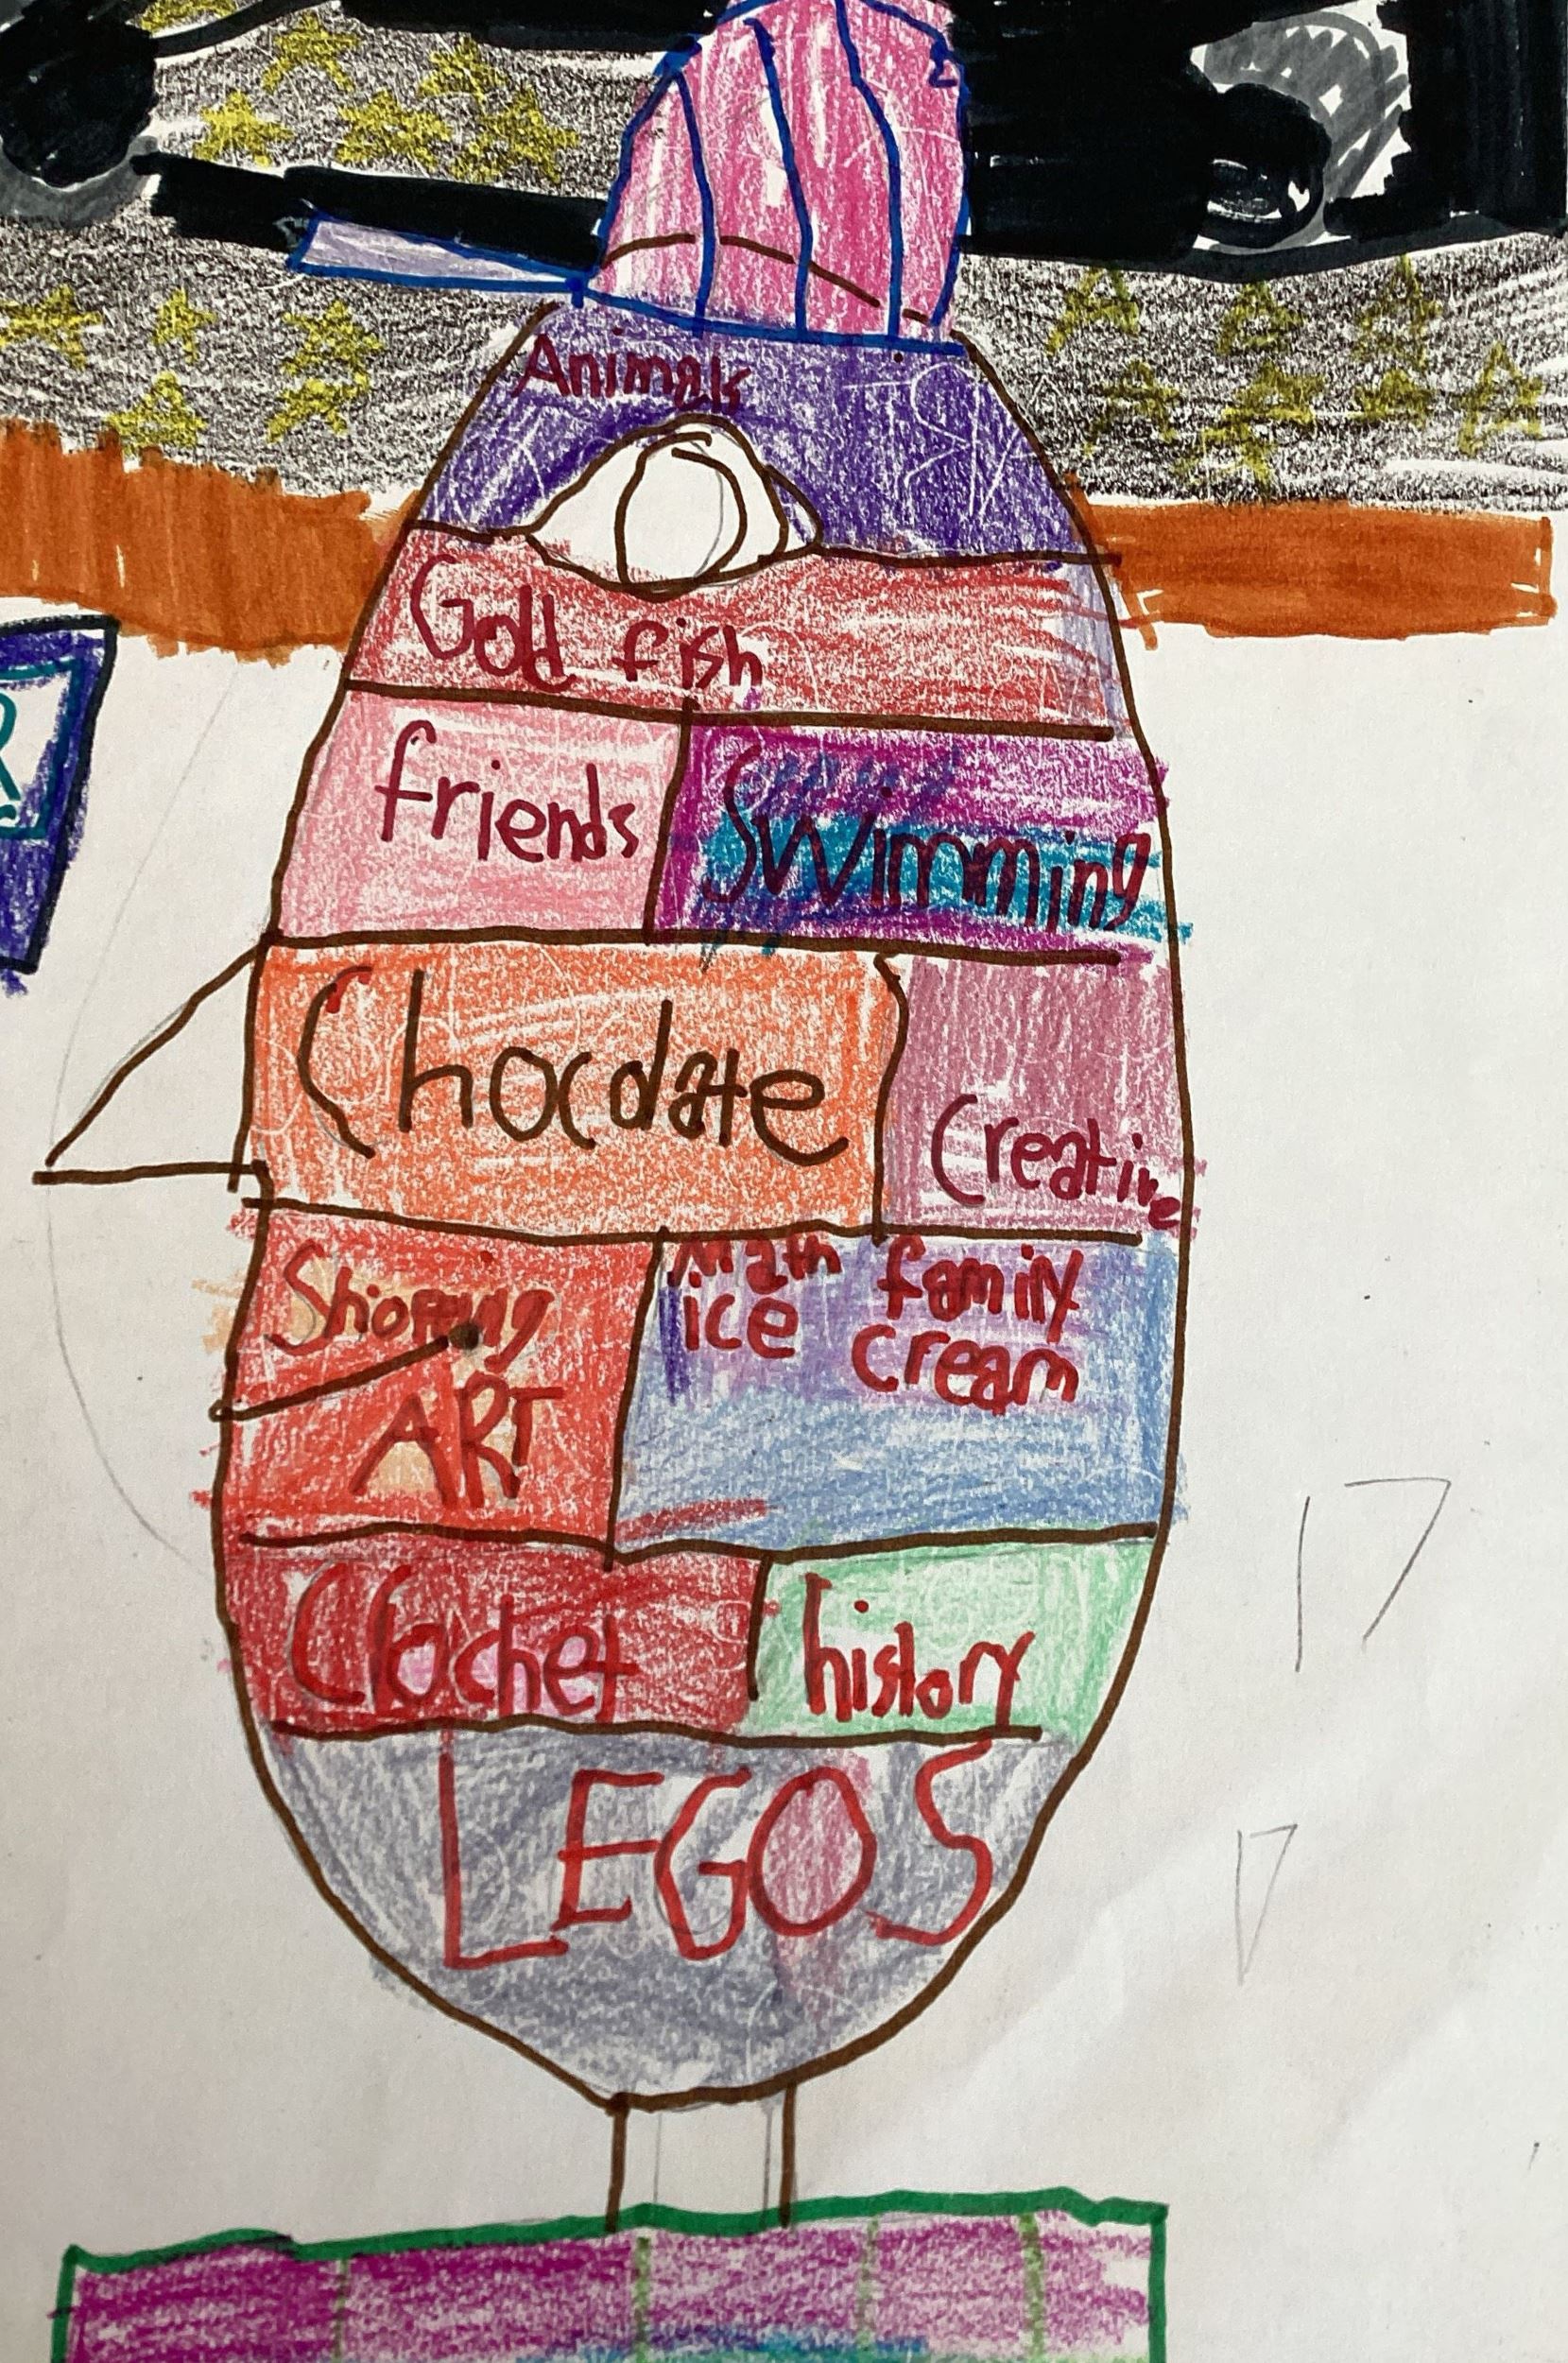 Animals
Gold fish
friends
Swimming
R
Chocolate
Creative
Shopping
Math family
ice cream
ART
Clochet
history
LEGOS